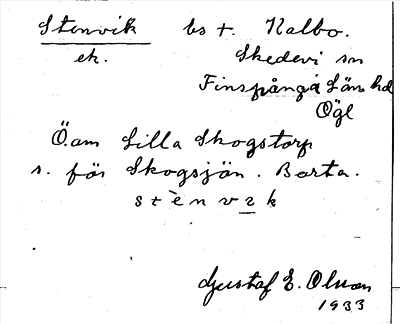 Stenvik bs t. Kalbo.
ek. Skedevi sn
Finspånga Läns hd
Ögl
Ö. om Lilla Skogstorp
s. för Skogsjön. Borta.
s t è n v ɪ k
Gustaf E. Olsson
1933